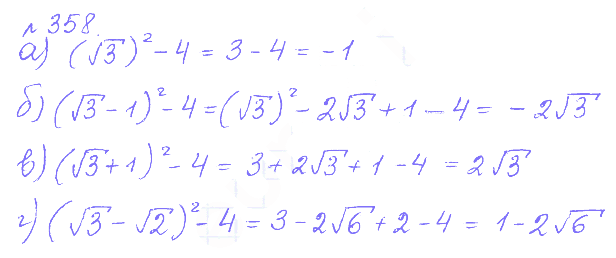 № 358.
а) (√3)² - 4 = 3 - 4 = -1
б) (√3 - 1)² - 4 = (√3)² - 2√3 + 1 - 4 = -2√3
в) (√3 + 1)² - 4 = 3 + 2√3 + 1 - 4 = 2√3
г) (√3 - √2)² - 4 = 3 - 2√6 + 2 - 4 = 1 - 2√6